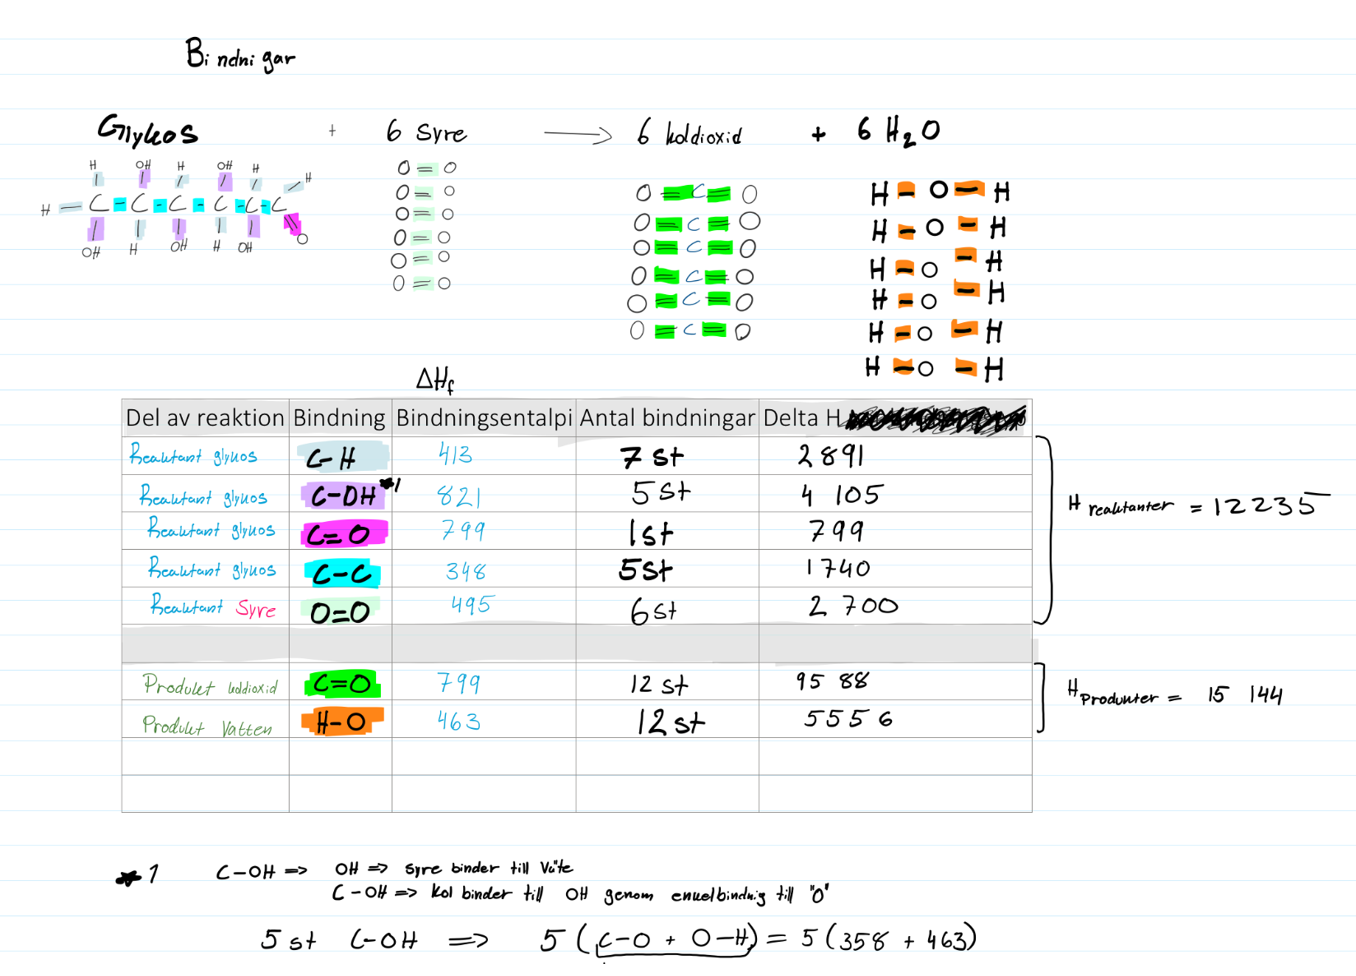 Bindnigar
Glykos + 6 Syre → 6 koldioxid + 6 H2O
H OH H OH H H
H C C C C C C
OH H OH H OH O
O = O
O = O
O = O
O = O
O = O
O = O
O = C = O
O = C = O
O = C = O
O = C = O
O = C = O
O = C = O
H - O - H
H - O - H
H - O - H
H - O - H
H - O - H
H - O - H
ΔHf
Del av reaktion Bindning Bindningsentalpi Antal bindningar Delta H
Reaktant glykos C-H 413 7 st 2891
Reaktant glykos C-OH *1 821 5 st 4 105
Reaktant glykos C=O 799 1st 799
Reaktant glykos C-C 348 5st 1740
Reaktant Syre O=O 495 6st 2 700
H reaktanter = 12235
Produkt koldioxid C=O 799 12 st 95 88
Produkt Vatten H-O 463 12 st 5556
H Produkter = 15 144
*1 C-OH => OH => syre binder till Väte
C-OH => kol binder till OH genom enkelbindnig till "O"
5 st C-OH => 5 (C-O + O-H) = 5 (358 + 463)